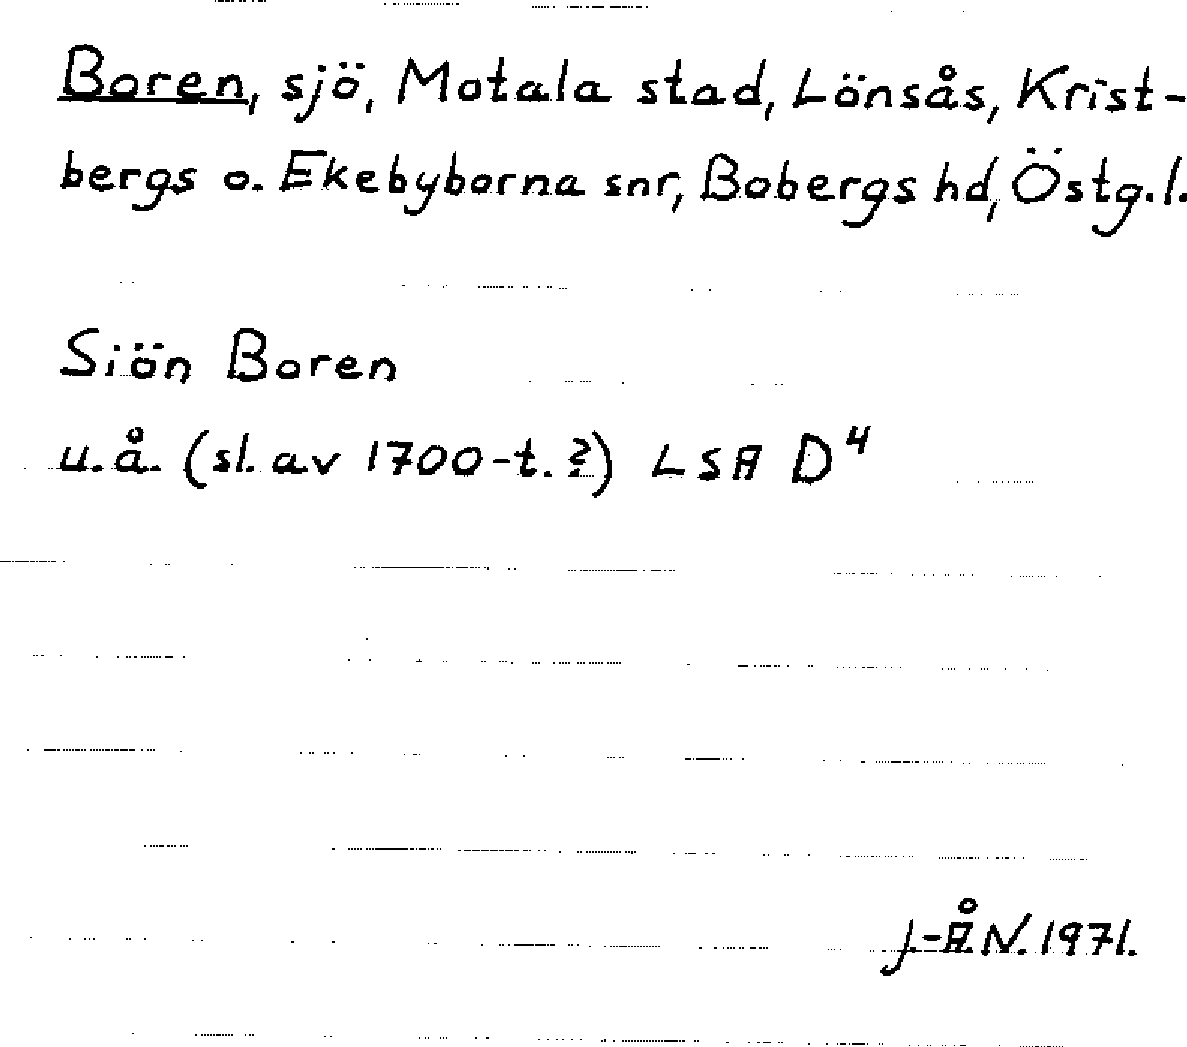 Boren, sjö, Motala stad, Lönsås, Krist-
bergs o. Ekebyborna snr, Bobergs hd, Östg. l.
Siön Boren
u.å. (sl. av 1700-t.?) LSA D⁴
J-Å. N. 1971.